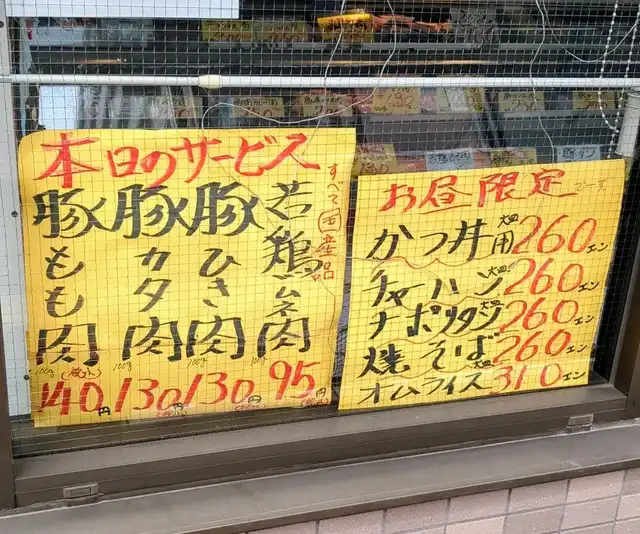 本日のサービス
すべて国産品
豚もも肉
100g
(税抜)
140円
豚カタ肉
100g
130円
豚ひき肉
100g
130円
若鶏ムネ肉
100g
95円
(税抜)
お昼限定
かつ丼用 大皿 260エン
チャーハン 大皿 260エン
ナポリタン 大皿 260エン
焼そば 大皿 260エン
オムライス 310エン
豚タン